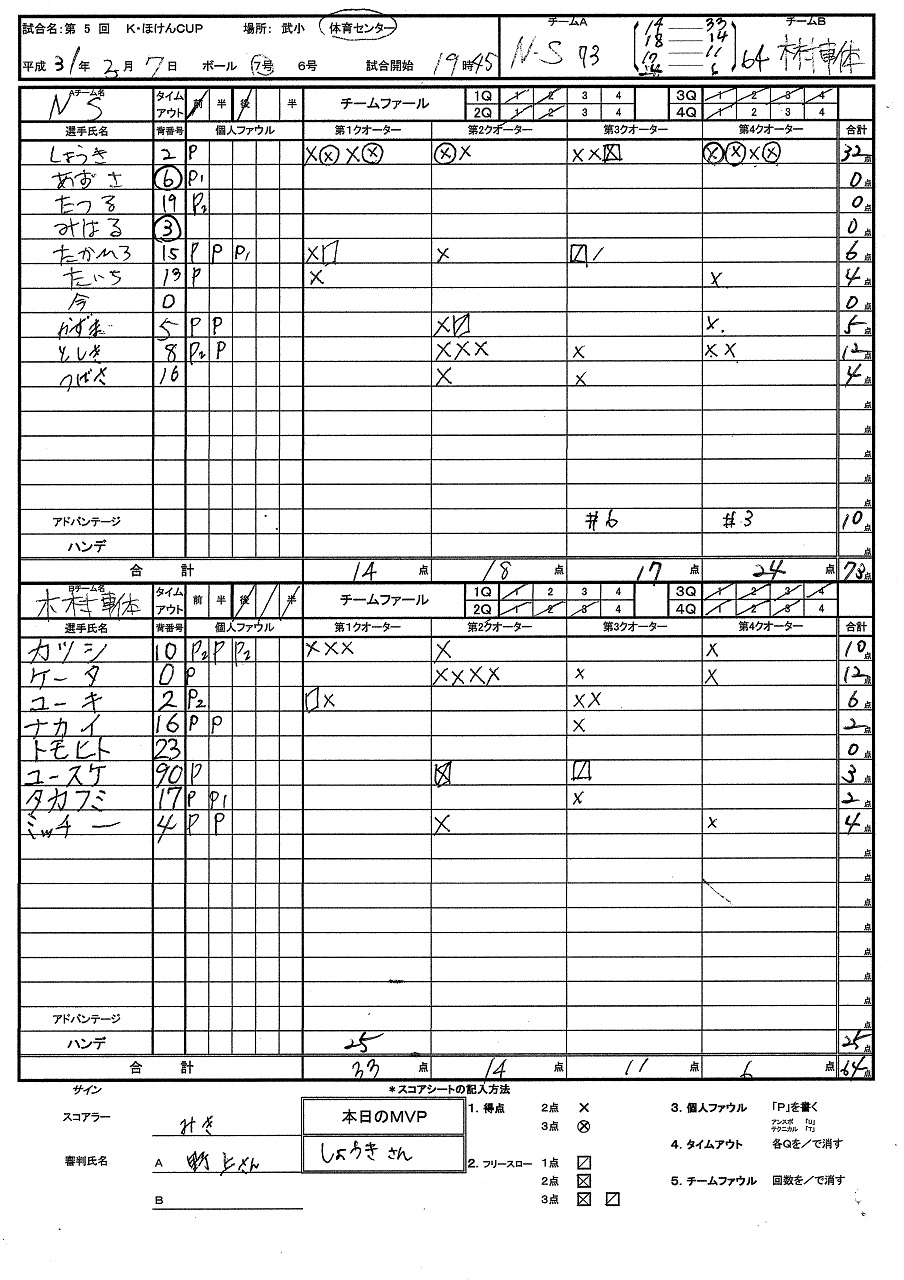 試合名:第 5 回 K・ほけんCUP 場所: 武小 体育センター
平成 31年 3月 7日 ボール 7号 6号 試合開始 19時45
チームA チームB
N-S 73 64 木村車体
14 ― 33
18 ― 14
17 ― 11
24 ― 6
Aチーム名 NS タイムアウト 前 半 後 半 チームファール 1Q 1 2 3 4 3Q 1 2 3 4
2Q 1 2 3 4 4Q 1 2 3 4
選手氏名 背番号 個人ファウル 第1クオーター 第2クオーター 第3クオーター 第4クオーター 合計
しょうき 2 P ×⊗×⊗ ⊗× ××☒ ⊗⊗×⊗ 32点
あずさ 6 P1 0点
たつる 19 P2 0点
みはる 3 0点
たかひろ 15 P P P1 ×□ × ☑/ 6点
たいち 13 P × × 4点
今 0 0点
かずま 5 P P ×☑ × 5点
としき 8 P2 P ××× × ×× 12点
つばさ 16 × × 4点
点
点
点
点
点
アドバンテージ #6 #3 10点
ハンデ 点
合 計 14点 18点 17点 24点 73点
Bチーム名 木村車体 タイムアウト 前 半 後 半 チームファール 1Q 1 2 3 4 3Q 1 2 3 4
2Q 1 2 3 4 4Q 1 2 3 4
選手氏名 背番号 個人ファウル 第1クオーター 第2クオーター 第3クオーター 第4クオーター 合計
カツシ 10 P2 P P2 ××× × × 10点
ケータ 0 P ×××× × × 12点
ユーキ 2 P2 □× ×× 6点
ナカイ 16 P P × 2点
トモヒト 23 0点
ユースケ 90 P ☒ ☑ 3点
タカフミ 17 P P1 × 2点
ミッチー 4 P P × × 4点
点
点
点
点
点
点
点
アドバンテージ 点
ハンデ 25 25点
合 計 33点 14点 11点 6点 64点
サイン
スコアラー みき
審判氏名 A 野上さん
B
本日のMVP
しょうきさん
*スコアシートの記入方法
1. 得点 2点 ×
3点 ⊗
2. フリースロー 1点 ☑
2点 ☒
3点 ☒ ☑
3. 個人ファウル 「P」を書く
アンスポ 「U」
テクニカル 「T」
4. タイムアウト 各Qを/で消す
5. チームファウル 回数を/で消す